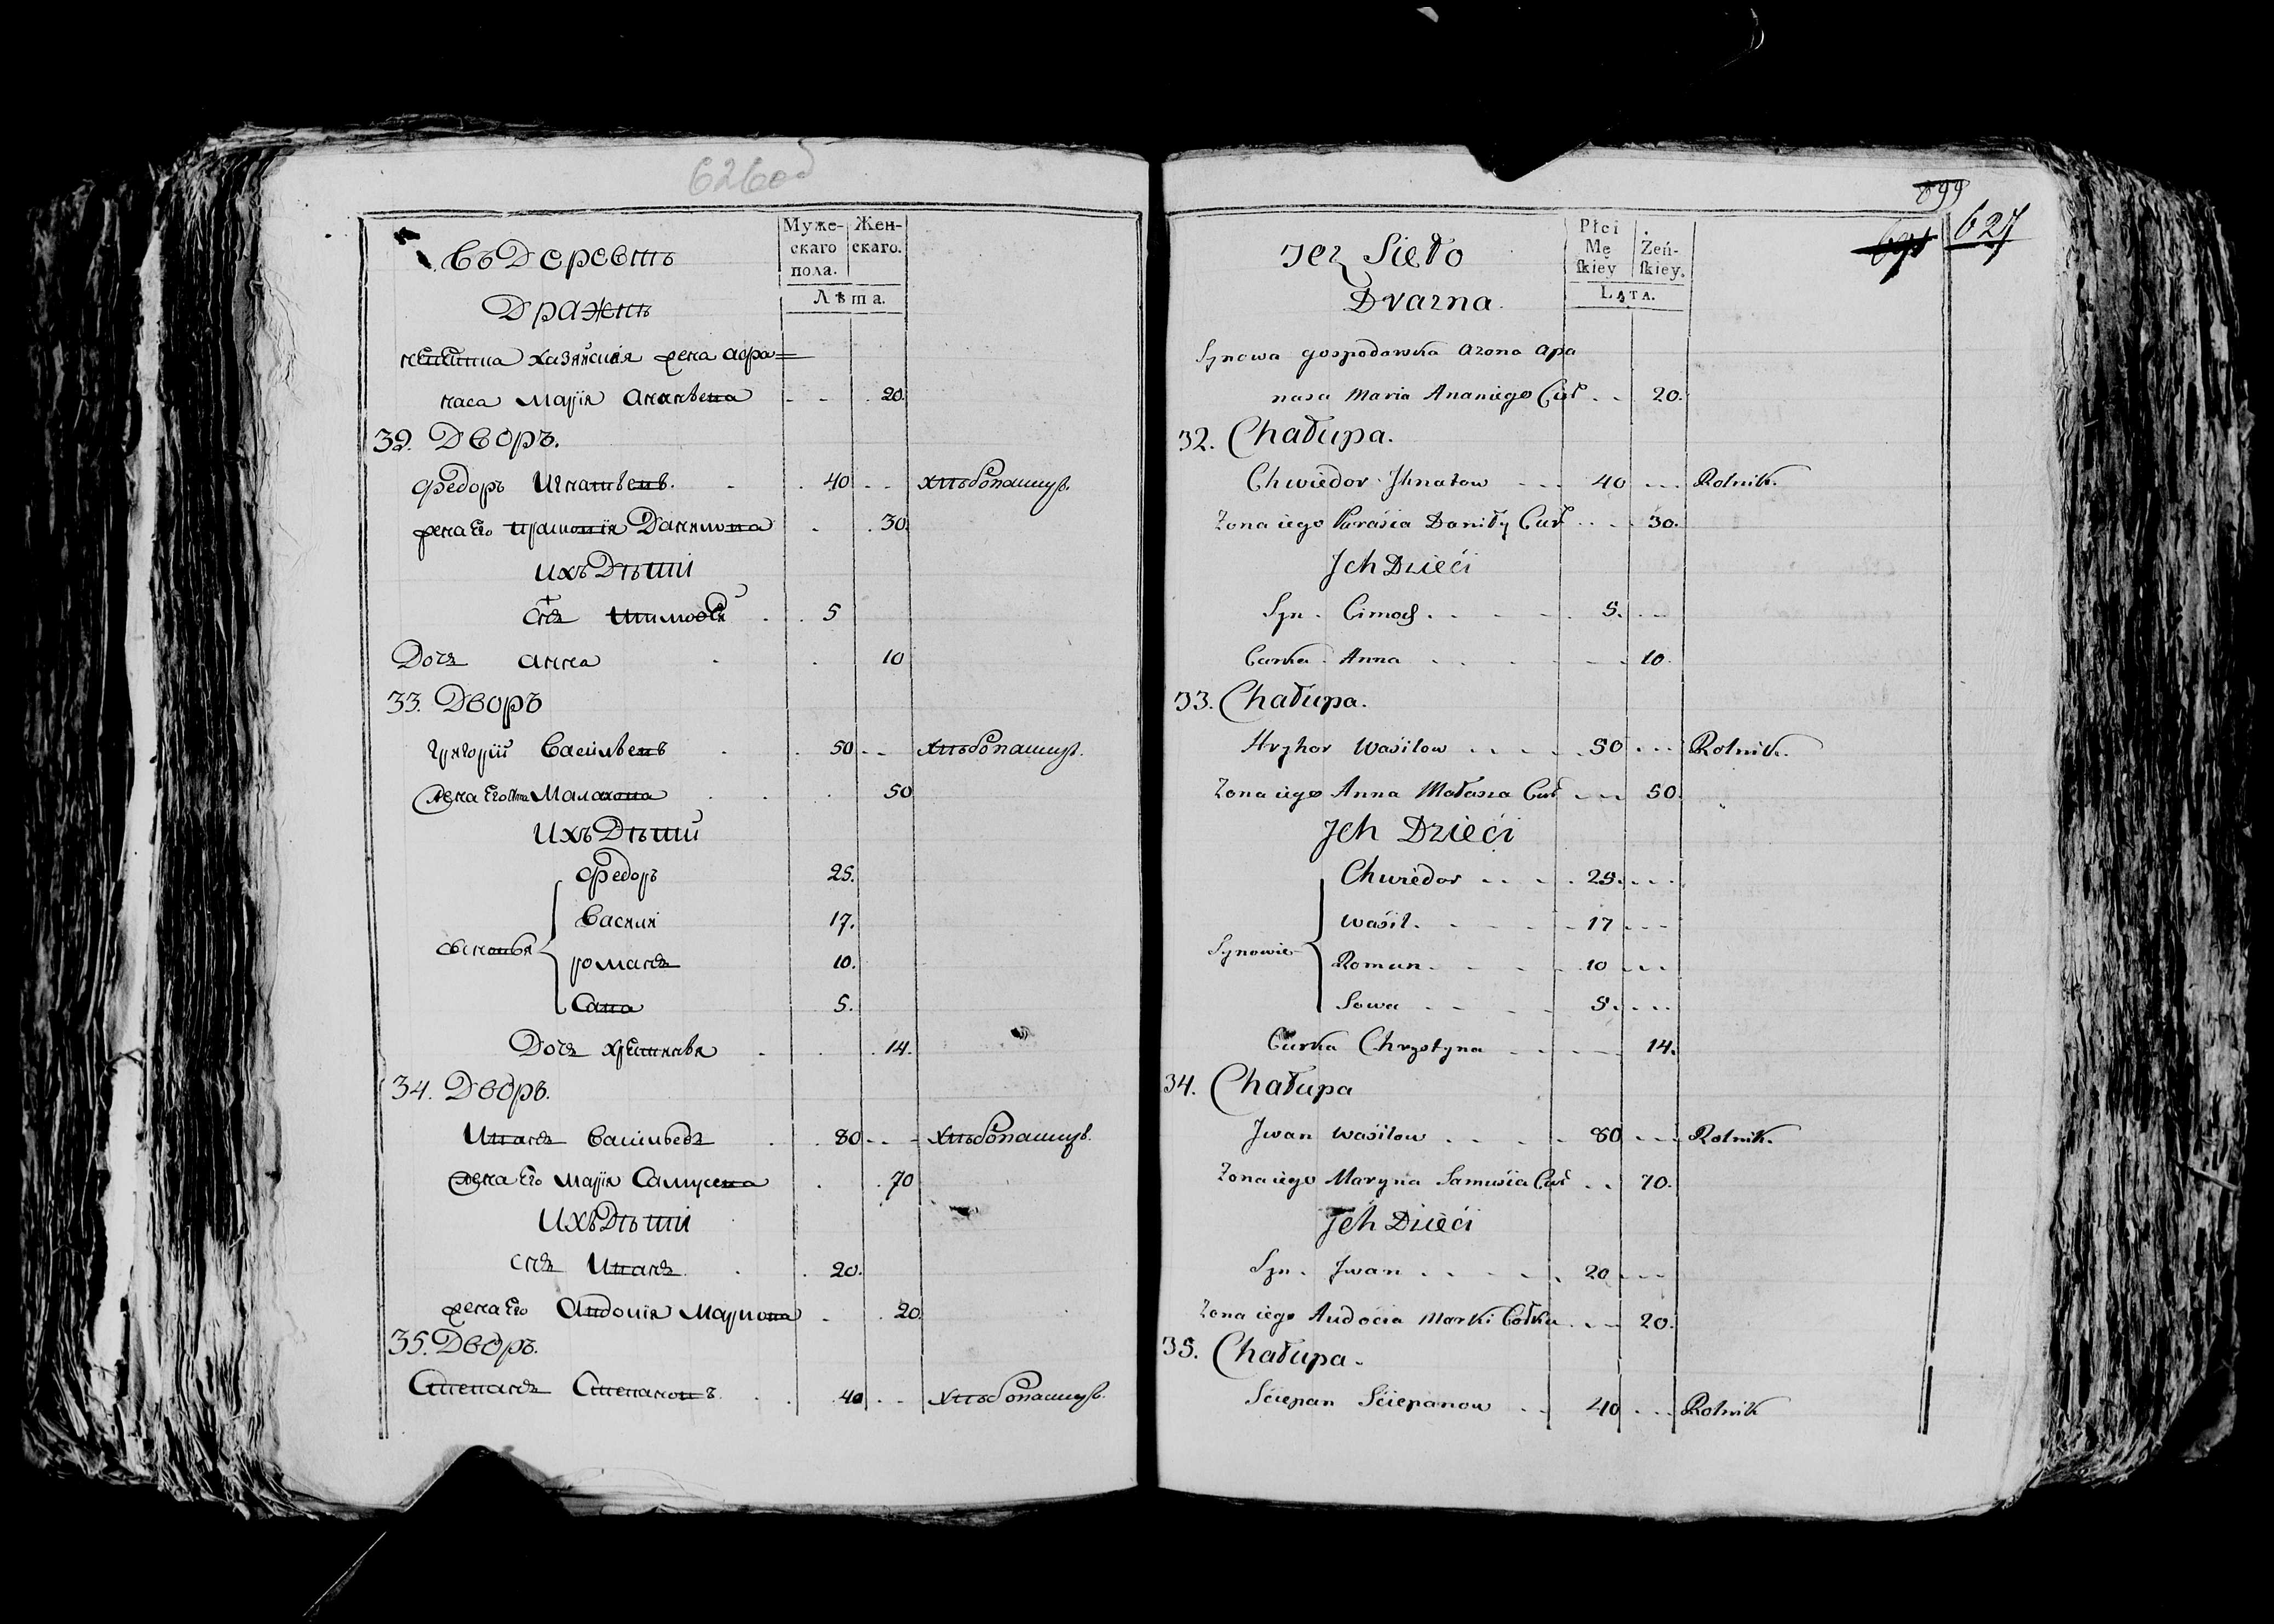 626об
Муже-
скаго
пола.
Жен-
скаго.
Лѣта.
Въ Деревнѣ
Дражнѣ
невѣстка хазяйская жена Афра=
наса Марія Ананьева - - 20.
32. Дворъ.
Федоръ Игнатьевъ. - 40 - - хлѣбопашцъ.
жена Его Прасковія Данилова - 30
Ихъ Дѣти
Снъ Тимофѣй 5
Дочь Анна 10
33. Дворъ
Григорій Васильевъ 50 - - хлѣбопашцъ.
жена Его Анна Малахова 50
Ихъ Дѣти
Сыновья
Федоръ 25.
Василй 17.
Романъ 10.
Сава 5.
Дочь Хрестинья 14.
34. Дворъ.
Иванъ Васильевъ 80 - - Хлѣбопашцъ.
жена Его Марія Самусева 70
Ихъ Дѣти
снъ Иванъ 20.
жена Его Авдотія Маркова 20
35. Дворъ.
Степанъ Степановъ 40 - - Хлѣбопашцъ.
899
627
Płci
Mę
skiey
Żeń-
skiey.
Lata.
Sieło
Drazna.
Synowa gospodarska azona Apa
nasa Maria Ananiego Cur - - 20.
32. Chałupa.
Chwiedor Jhnatow - - - 40 - - - Rolnik.
Zona iego Parasia Daniły Cur - - - 30.
Jch Dzieci
Syn - Cimoch 5. - - -
Curka - Anna - - - 10.
33. Chałupa.
Hryhor Wasilow 50 - - - Rolnik.
Zona iego Anna Małasza Cur - - - 50.
Jch Dzieci
Synowie
Chwiedor 25 - - -
Wasil 17 - - -
Roman 10 - - -
Sawa 5 - - -
Curka Chrystyna 14.
34. Chałupa
Jwan Wasilow 80 - - - Rolnik.
Zona iego Maryna Samusia Cur - - 70.
Jch Dzieci
Syn - Jwan 20 - - -
Zona iego Audocia Marki Corka - - 20.
35. Chałupa.
Sciepan Sciepanow 40 - - - Rolnik